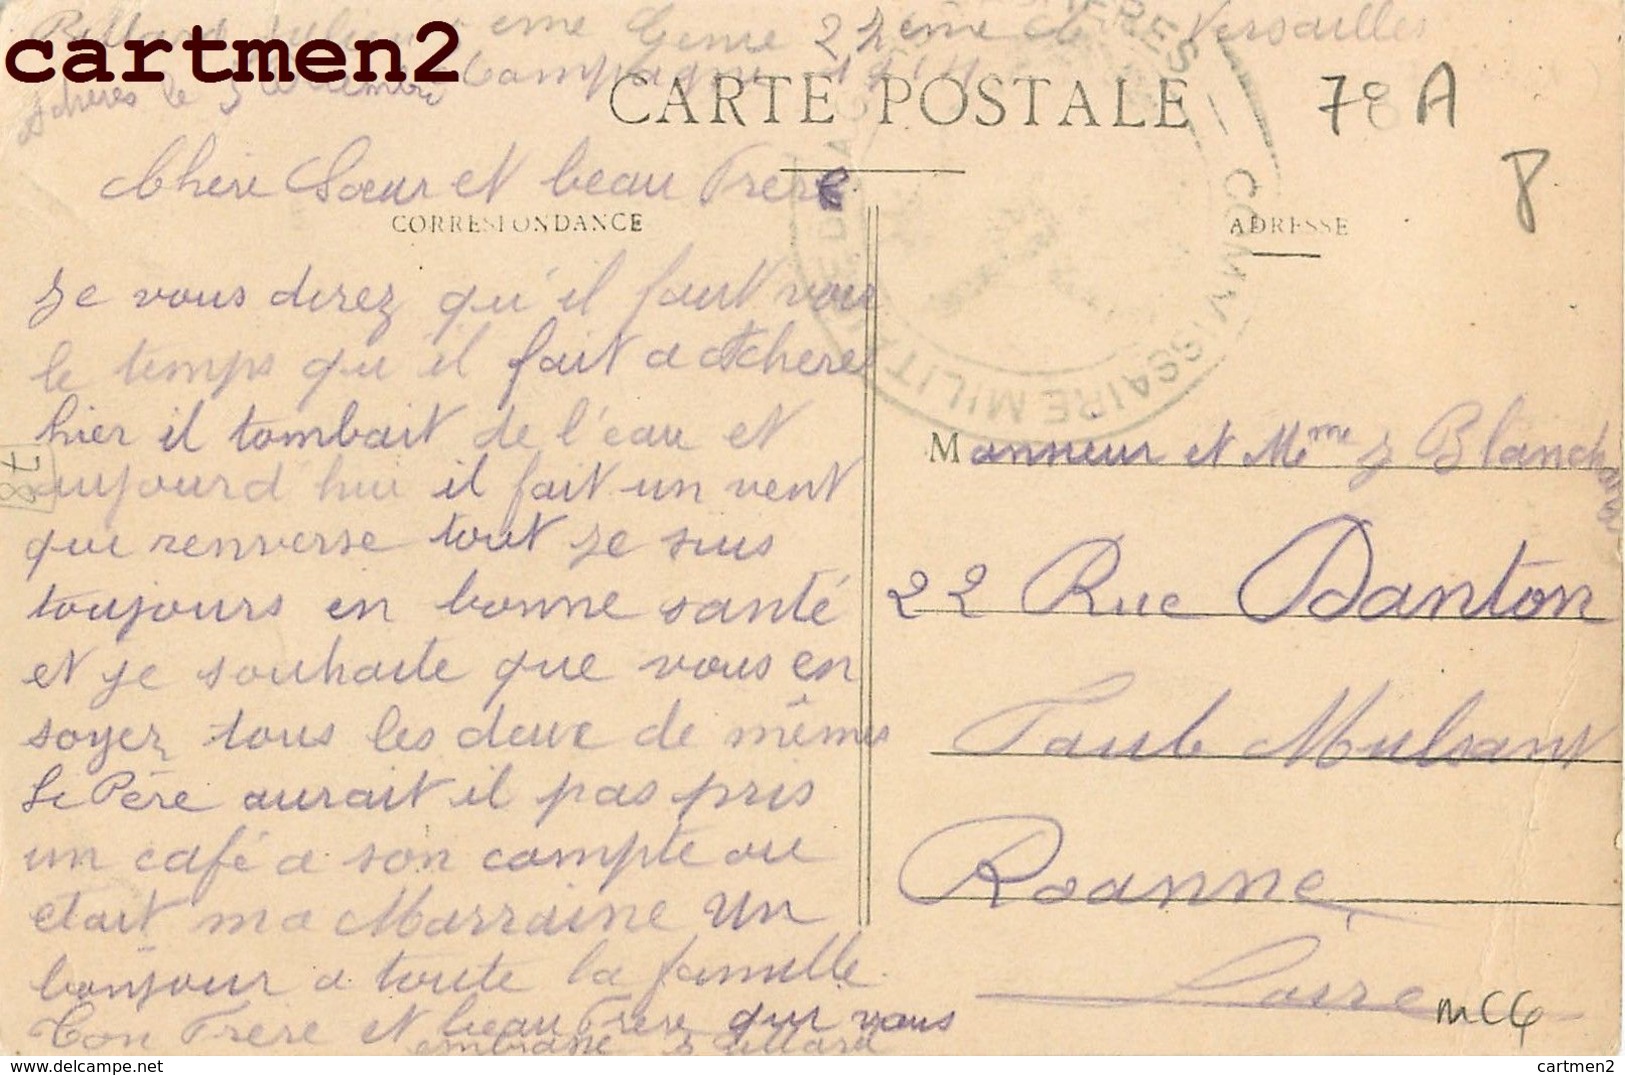 cartmen2
eme Genie 22 eme Cie Versailles
Acheres le 5
Campagne
CARTE POSTALE
78 A
8
Chère Sœur et beau Frere
CORRESPONDANCE
ADRESSE
COMMISSAIRE MILITAIRE DE
Je vous direz qu'il faut voir
le temps qu'il fait a Achere
hier il tombait de l'eau et
aujourd'hui il fait un vent
que renverse tout je suis
toujours en bonne santé
et je souhaite que vous en
soyez tous les deux de mêmes
Le Père aurait il pas pris
un café a son compte ou
etait ma Marraine Un
bonjour a toute la famille
Ton Frere et beau Frere qui vous
embrasse J Billard
78
Monsieur et Mme J Blanchard
22 Rue Danton
Faub Mulsant
Roanne
Loire
MCG
cartmen2
cartmen2